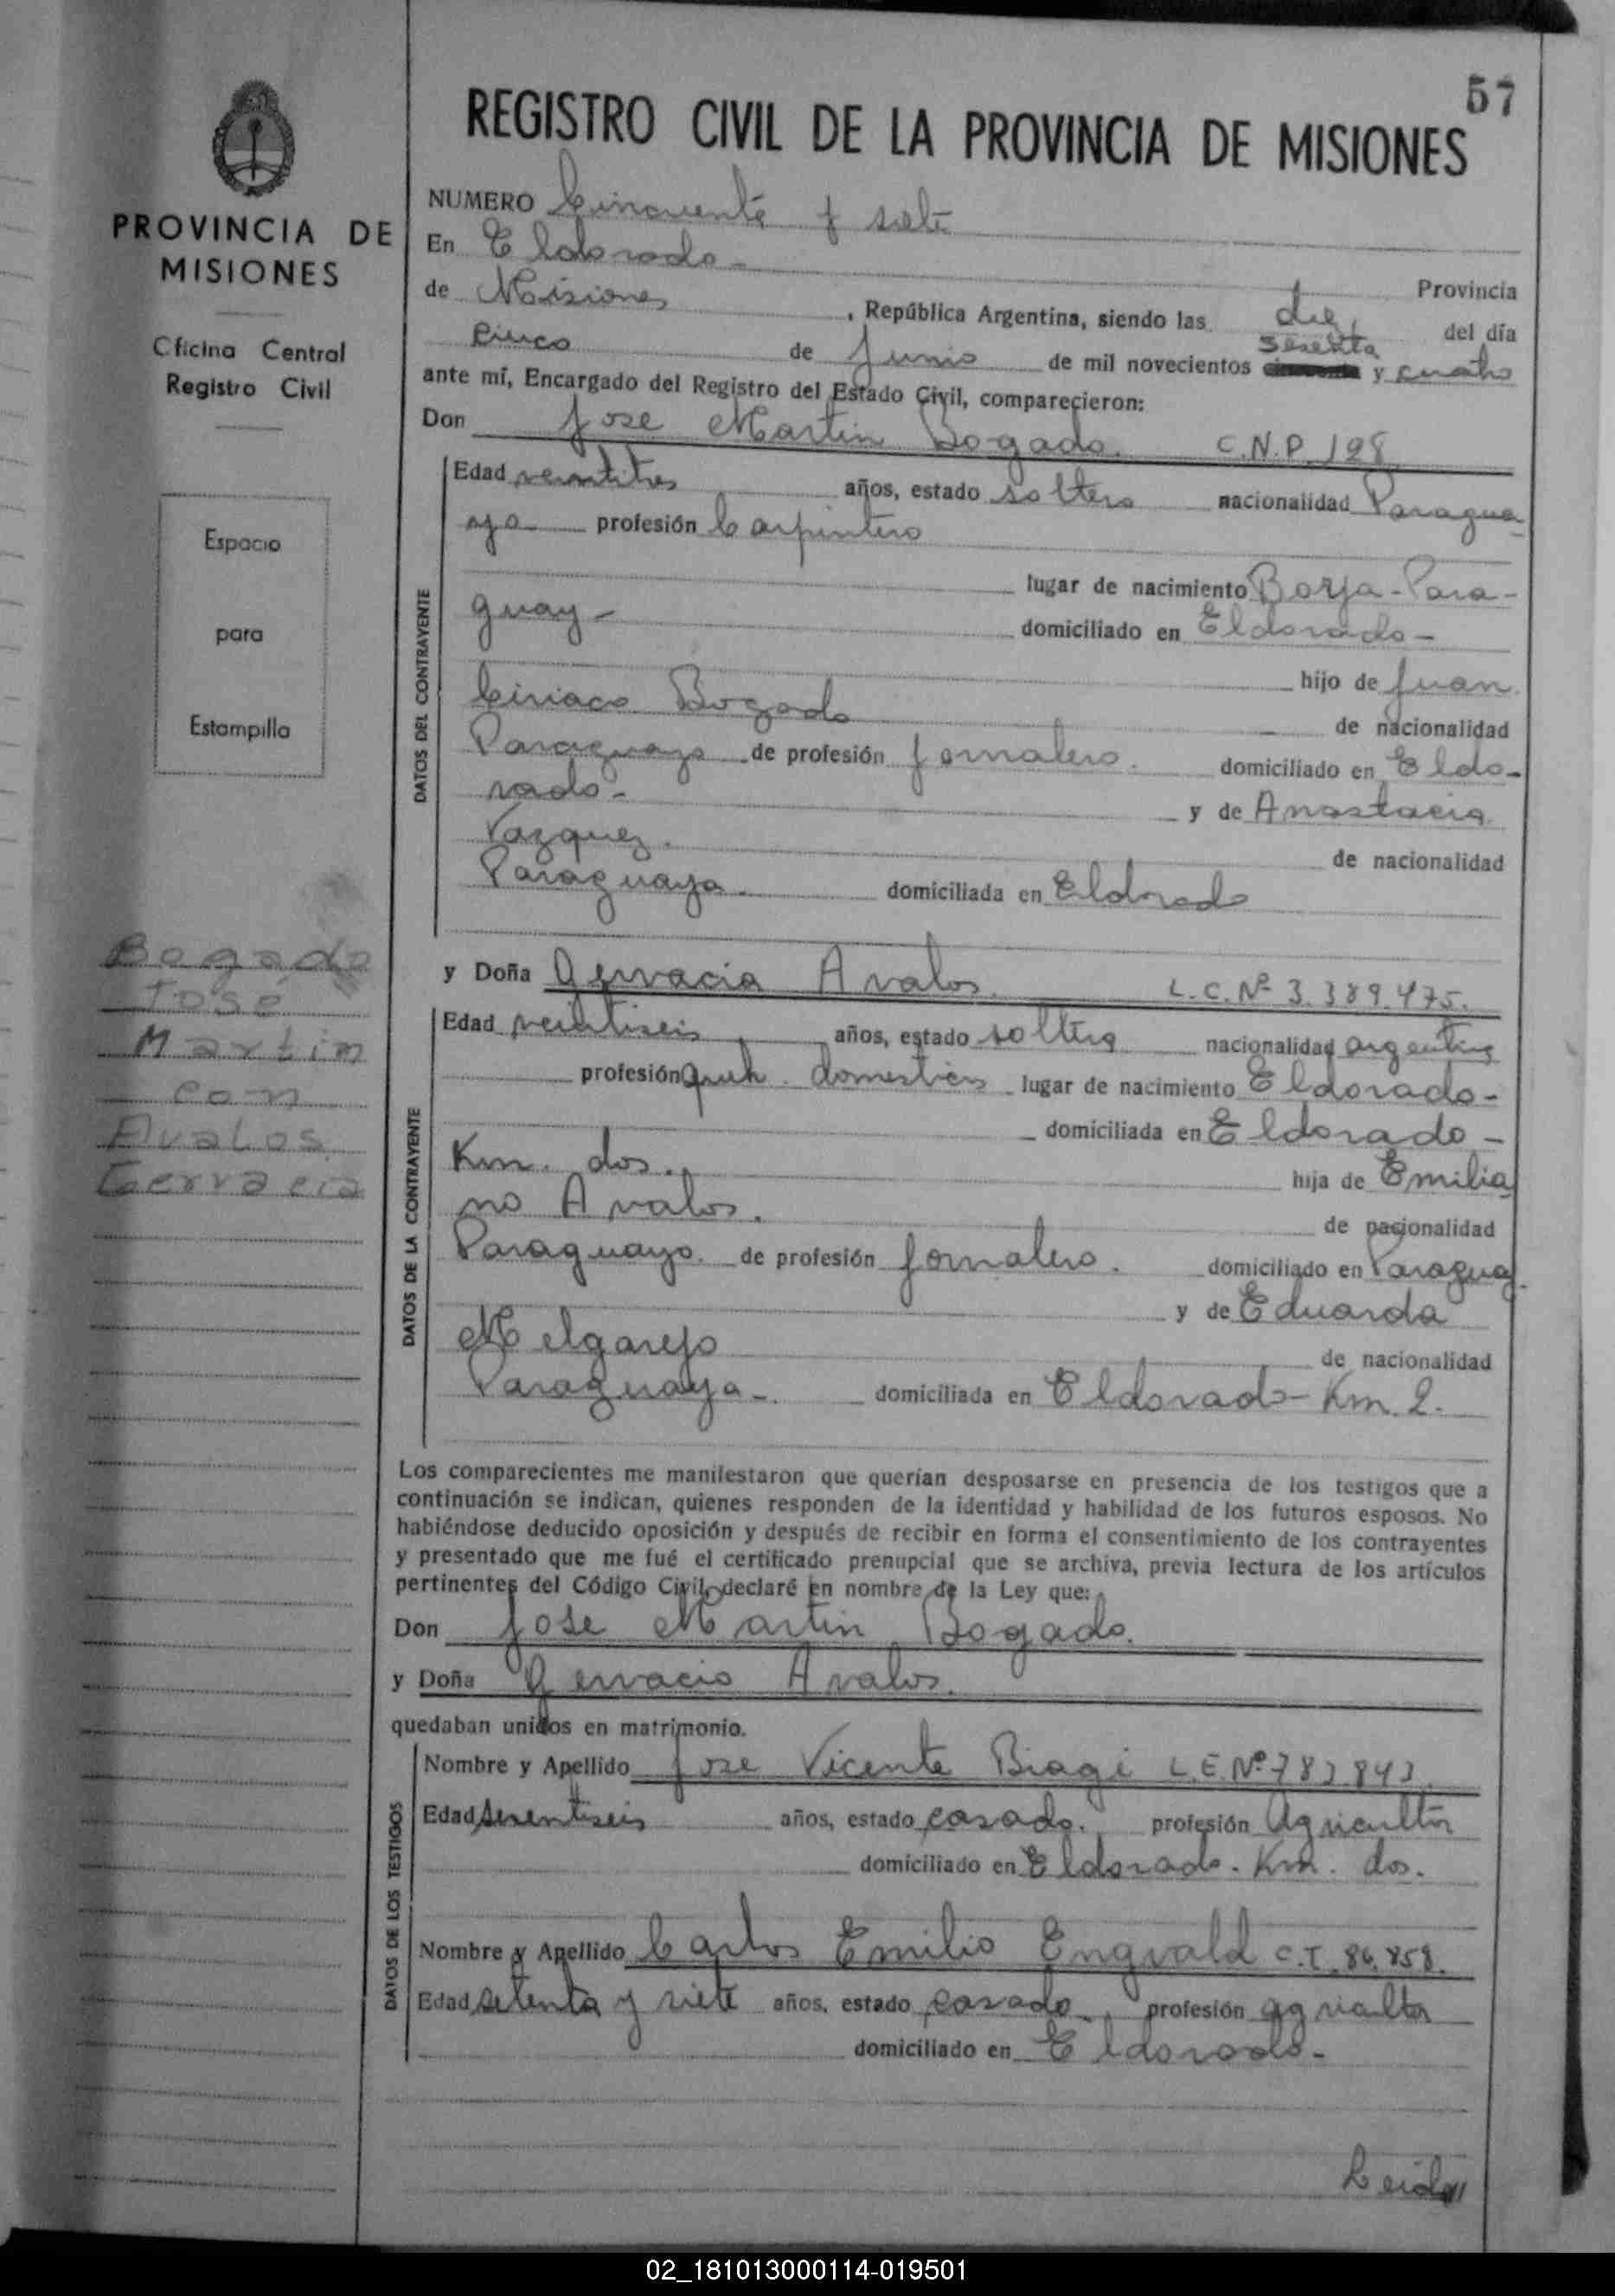 57
REGISTRO CIVIL DE LA PROVINCIA DE MISIONES
PROVINCIA DE
MISIONES
Oficina Central
Registro Civil
Espacio
para
Estampilla
Bogado
José
Martin
con
Avalos
Gervacia
NUMERO Cincuenta y siete
En Eldorado - Provincia
de Misiones, República Argentina, siendo las diez del día
cinco de Junio de mil novecientos sesenta y cuatro
ante mí, Encargado del Registro del Estado Civil, comparecieron:
Don Jose Martin Bogado. C.N.P. 128
DATOS DEL CONTRAYENTE
Edad veintitres años, estado soltero nacionalidad Paragua-
yo profesión Carpintero
lugar de nacimiento Borja-Para-
guay - domiciliado en Eldorado -
hijo de Juan
Ciriaco Bogado de nacionalidad
Paraguayo de profesión Jornalero. domiciliado en Eldo-
rado - y de Anastacia
Vazquez. de nacionalidad
Paraguaya. domiciliada en Eldorado
y Doña Gervacia Avalos. L.C.Nº 3.389.475.
DATOS DE LA CONTRAYENTE
Edad veintiseis años, estado soltera nacionalidad argentina
profesión domesticos lugar de nacimiento Eldorado -
domiciliada en Eldorado -
Km. dos. hija de Emilia
no Avalos. de nacionalidad
Paraguayo. de profesión Jornalero. domiciliado en Paraguay.
y de Eduarda
Melgarejo de nacionalidad
Paraguaya - domiciliada en Eldorado - Km. 2.
Los comparecientes me manifestaron que querían desposarse en presencia de los testigos que a
continuación se indican, quienes responden de la identidad y habilidad de los futuros esposos. No
habiéndose deducido oposición y después de recibir en forma el consentimiento de los contrayentes
y presentado que me fué el certificado prenupcial que se archiva, previa lectura de los artículos
pertinentes del Código Civil, declaré en nombre de la Ley que:
Don Jose Martin Bogado.
y Doña Gervacia Avalos.
quedaban unidos en matrimonio.
DATOS DE LOS TESTIGOS
Nombre y Apellido Jose Vicente Biagi L.E.Nº 783.843
Edad años, estado casado. profesión Agricultor
domiciliado en Eldorado. Km. dos.
Nombre y Apellido Carlos Emilio Engvald C.I. 86.858.
Edad setenta y siete años, estado casado, profesión agricultor
domiciliado en Eldorado -
Leida//
02_181013000114-019501